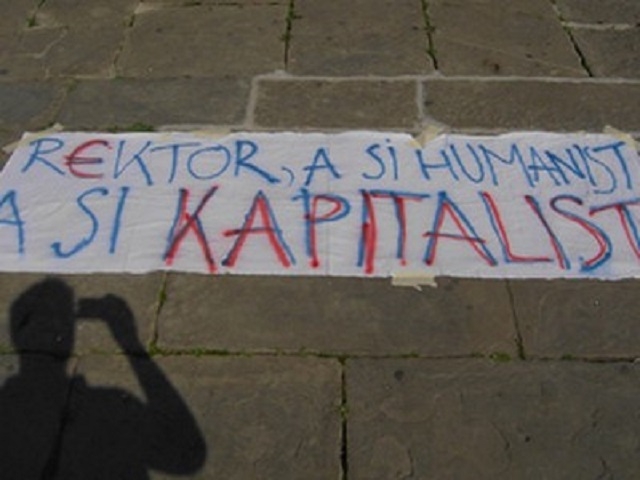 R€KTOR, A SI HUMANIST
A SI KAPITALIST